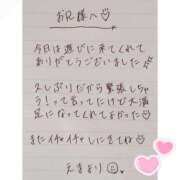 お兄様へ♡
今日は遊びに来てくれて
ありがとうございました
久しぶりだから緊張しちゃ
う！って言ってたけど大満
足になってくれてよかった
またイチャイチャしにきてね
えまより